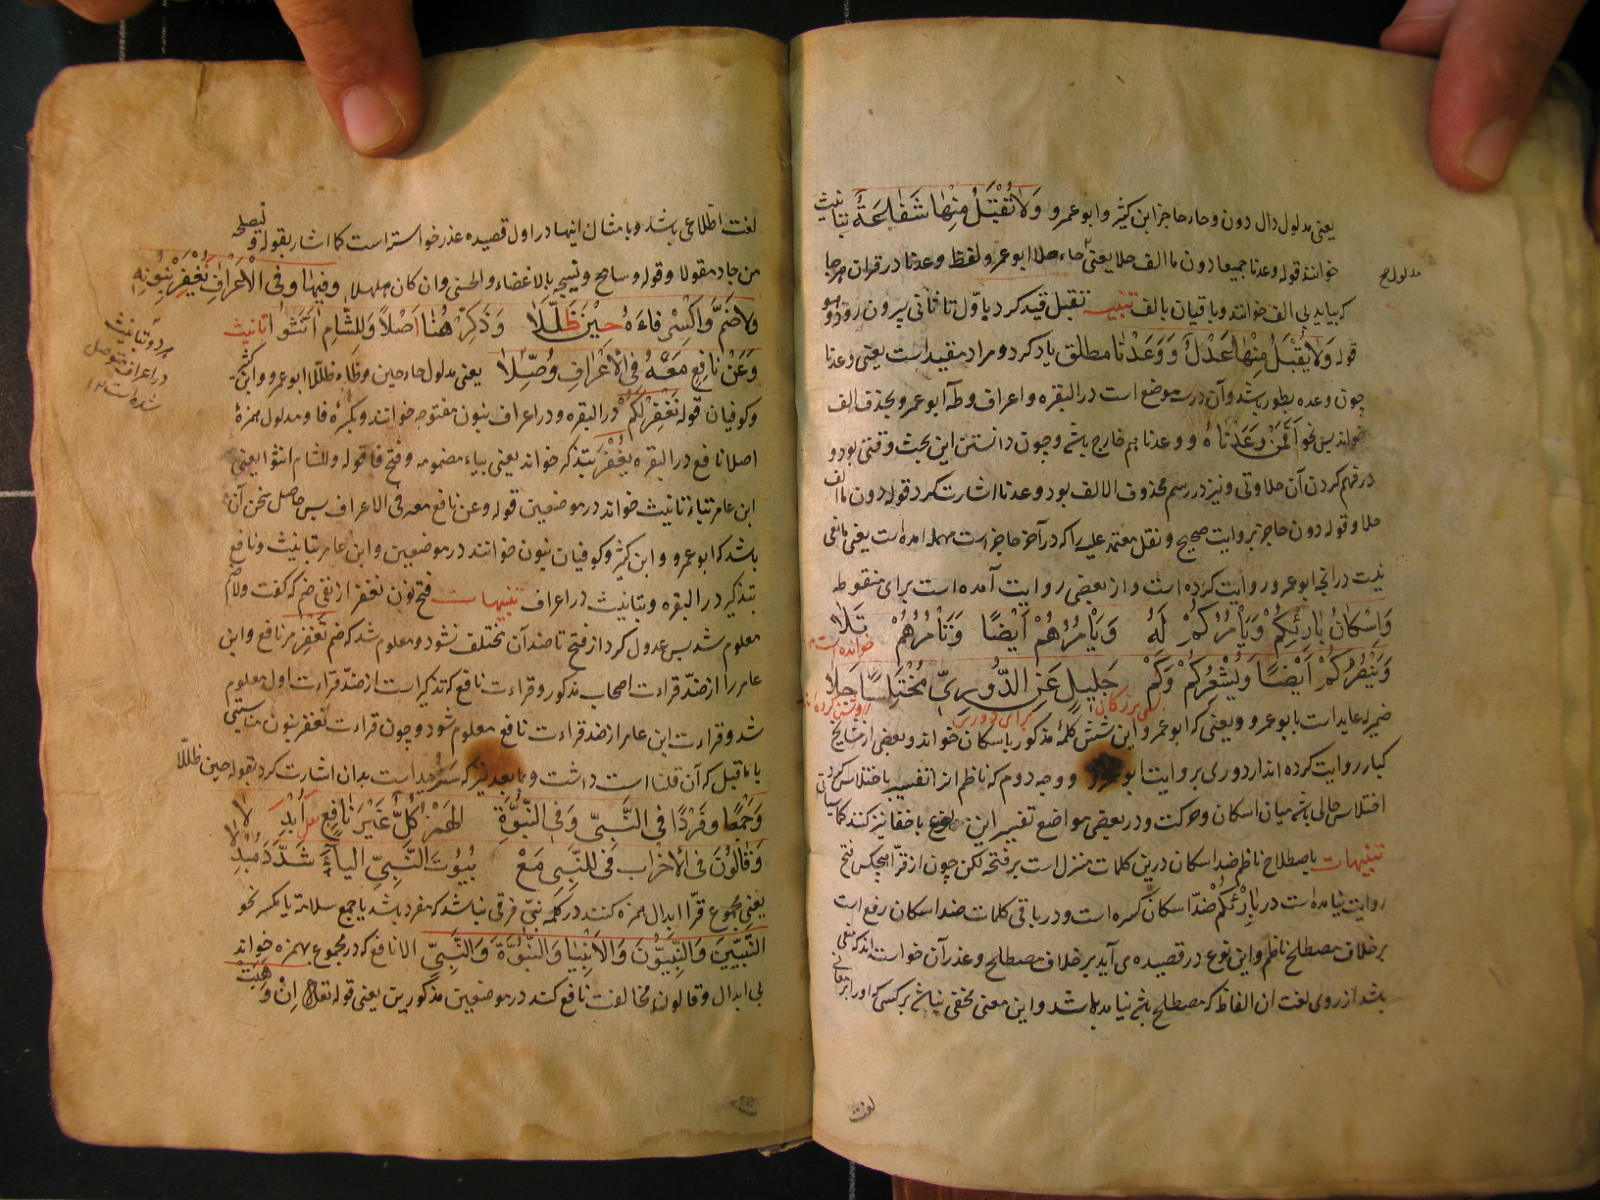 یعنی مدلول دال دون و حاء حاجز ابن کثیر و ابو عمرو وَلَا تُقْبَلُ مِنْهَا شَفَاعَةٌ بتانیث
خوانند قوله وعدنا جمیعا دون ما الف حلا یعنی حاء حلا ابو عمرو لفظ وعدنا در قران هرجا
که بیاید بی الف خوانند و باقیان بالف تنبیه تقبل قید کرد باوّل تا ثانی بیرون رود و هو
قوله وَلَا يُقْبَلُ مِنْهَا عَدْلٌ وَ وَعَدْنَا مطلق یاد کرد و مراد مقید است یعنی وعدنا
چون وعده بطور باشد و آن در سه موضع است در البقره و اعراف و طه ابو عمرو بحذف الف
خوانند پس نحو أَفَمَنْ وَعَدْنَاهُ و وعدنا هم خارج باشد و چون دانستن این بحث وقتی بود و
در فهم کردن آن حلاوتی و نیز در رسم محذوف الالف بود وعدنا اشارت کرد قوله دون ما الف
حلا و قوله دون حاجز بروایت صحیح و نقل معتمد علیه را که در آخر حاجز است مهمله امده است یعنی مانعی
نیست در انچه ابو عمرو روایت کرده است و از بعضی روایت آمده است برای منقوطه
وَاِسْكَانُ بَارِئِكُمْ وَيَأْمُرُكُمْ لَهُ وَيَأْمُرُهُمْ أَيْضًا وَتَأْمُرُهُمْ تَلَا
خوانده است
وَيَنْصُرُكُمْ أَيْضًا وَيُشْعِرُكُمْ وَكَمْ جَلِيلٍ عَنِ الدُّورِيِّ مُخْتَلِسًا جَلَا
ضمیر له عاید است بابو عمرو و یعنی که ابو عمرو این شش کلمه مذکور باسکان خواند و بعضی از مشایخ
کبار روایت کرده اند از دوری بروایت ابو عمرو و وجه دوم که ناظم از ان تفسیر باختلاس کرد
اختلاس حالی باشد میان اسکان و حرکت و در بعضی مواضع تفسیر این نوع باخفا نیز کنند کما سیاتی
تنبیهات باصطلاح ناظم ضد اسکان درین کلمات منزل است بر فتحه لکن چون از قرّا هیچکس فتح
روایت نیامده است در بَارِئِكُمْ ضدّ اسکان کسره است و در باقی کلمات ضد اسکان رفع است
بر خلاف مصطلح ناظم و این نوع در قصیده می آید بر خلاف مصطلح و عذر آن خواست
باشد از روی لغت ان الفاظ که مصطلح باشد نیامده باشد و این معنی مخفی نباشد بر کسی که او را بر معانی
لغت
مدلول ح
لغت اطلاعی باشد و بامثال اینها در اول قصیده عذر خواسته است کما اشار بقوله و لیصلحه
من جاد مقولا و قوله و سامح و نسیجه بالاغضاء و الحسنی و ان کان هلهلا وَفِيهَا وَفِي الْأَعْرَافِ نَغْفِرْ بِنُونِهِ
وَلَا ضَمَّ وَاكْسِرْ فَاءَهُ حِيْنَ ظَلَّلَا وَذَكِّرْ هُنَا أَصْلًا وَلِلشَّامِ أَنَّثُوا
وَعَنْ نَافِعٍ مَعْهُ فِي الْأَعْرَافِ وُصِّلَا یعنی مدلول حاء حین و ظاء ظللا ابو عمرو و ابن کثیر
و کوفیان قوله نَغْفِرْ لَكُمْ در البقره و در اعراف بنون مفتوحه خوانند و بکسره فا و مدلول همزهٔ
اصلا نافع در البقره یُغْفَرْ بتذکیر خواند یعنی بیاء مضمومه و فتح فا قوله و للشام انثوا یعنی
ابن عامر بتاء تانیث خواند در موضعین قوله و عن نافع معه فی الاعراف پس حاصل سخن آن
باشد که ابو عمرو و ابن کثیر و کوفیان بنون خوانند در موضعین و ابن عامر بتانیث و نافع
بتذکیر در البقره و بتانیث در اعراف تنبیهات فتح نون نغفر از نفی ضم که گفت ولا ضم
معلوم شد پس عدول کرد از فتح تا ضد آن مختلف نشود و معلوم شد که ضم تغفر مر نافع و ابن
عامر را از ضدّ قراءت اصحاب مذکور و قراءت نافع که تذکیر است از ضدّ قراءت اول معلوم
شد و قراءت ابن عامر از ضد قراءت نافع معلوم شود و چون قراءت نغفر بنون مناسبتی
با ماقبل که آن قلنا است داشت و بمابعد نیز که سنزید است بدان اشارت کرد بقوله حین ظللا
وَجَمْعًا وَفَرْدًا فِي النَّبِيِّ وَفِي النُّبُوءَةِ الْهَمْزَ كُلٌّ غَيْرَ نَافِعٍ أَبْدَلَا
وَقَالُونُ فِي الْأَحْزَابِ فِي لِلنَّبِيِّ مَعْ بُيُوتَ النَّبِيِّ الْيَاءَ شَدَّدَ مُبْدِلَا
یعنی مجموع قرّا ابدال همزه کنند در کلمه نبی فرقی نباشد که مفرد باشد یا جمع سلامة یا مکسر نحو
النَّبِيِّينَ وَالنَّبِيُّونَ وَالْأَنْبِيَا وَالنُّبُوَّةَ وَالنَّبِيِّ الا نافع که در مجموع بهمزه خواند
بی ابدال و قالون مخالفت نافع کند در موضعین مذکورین یعنی قوله تعالی اِنْ وَهَبَتْ